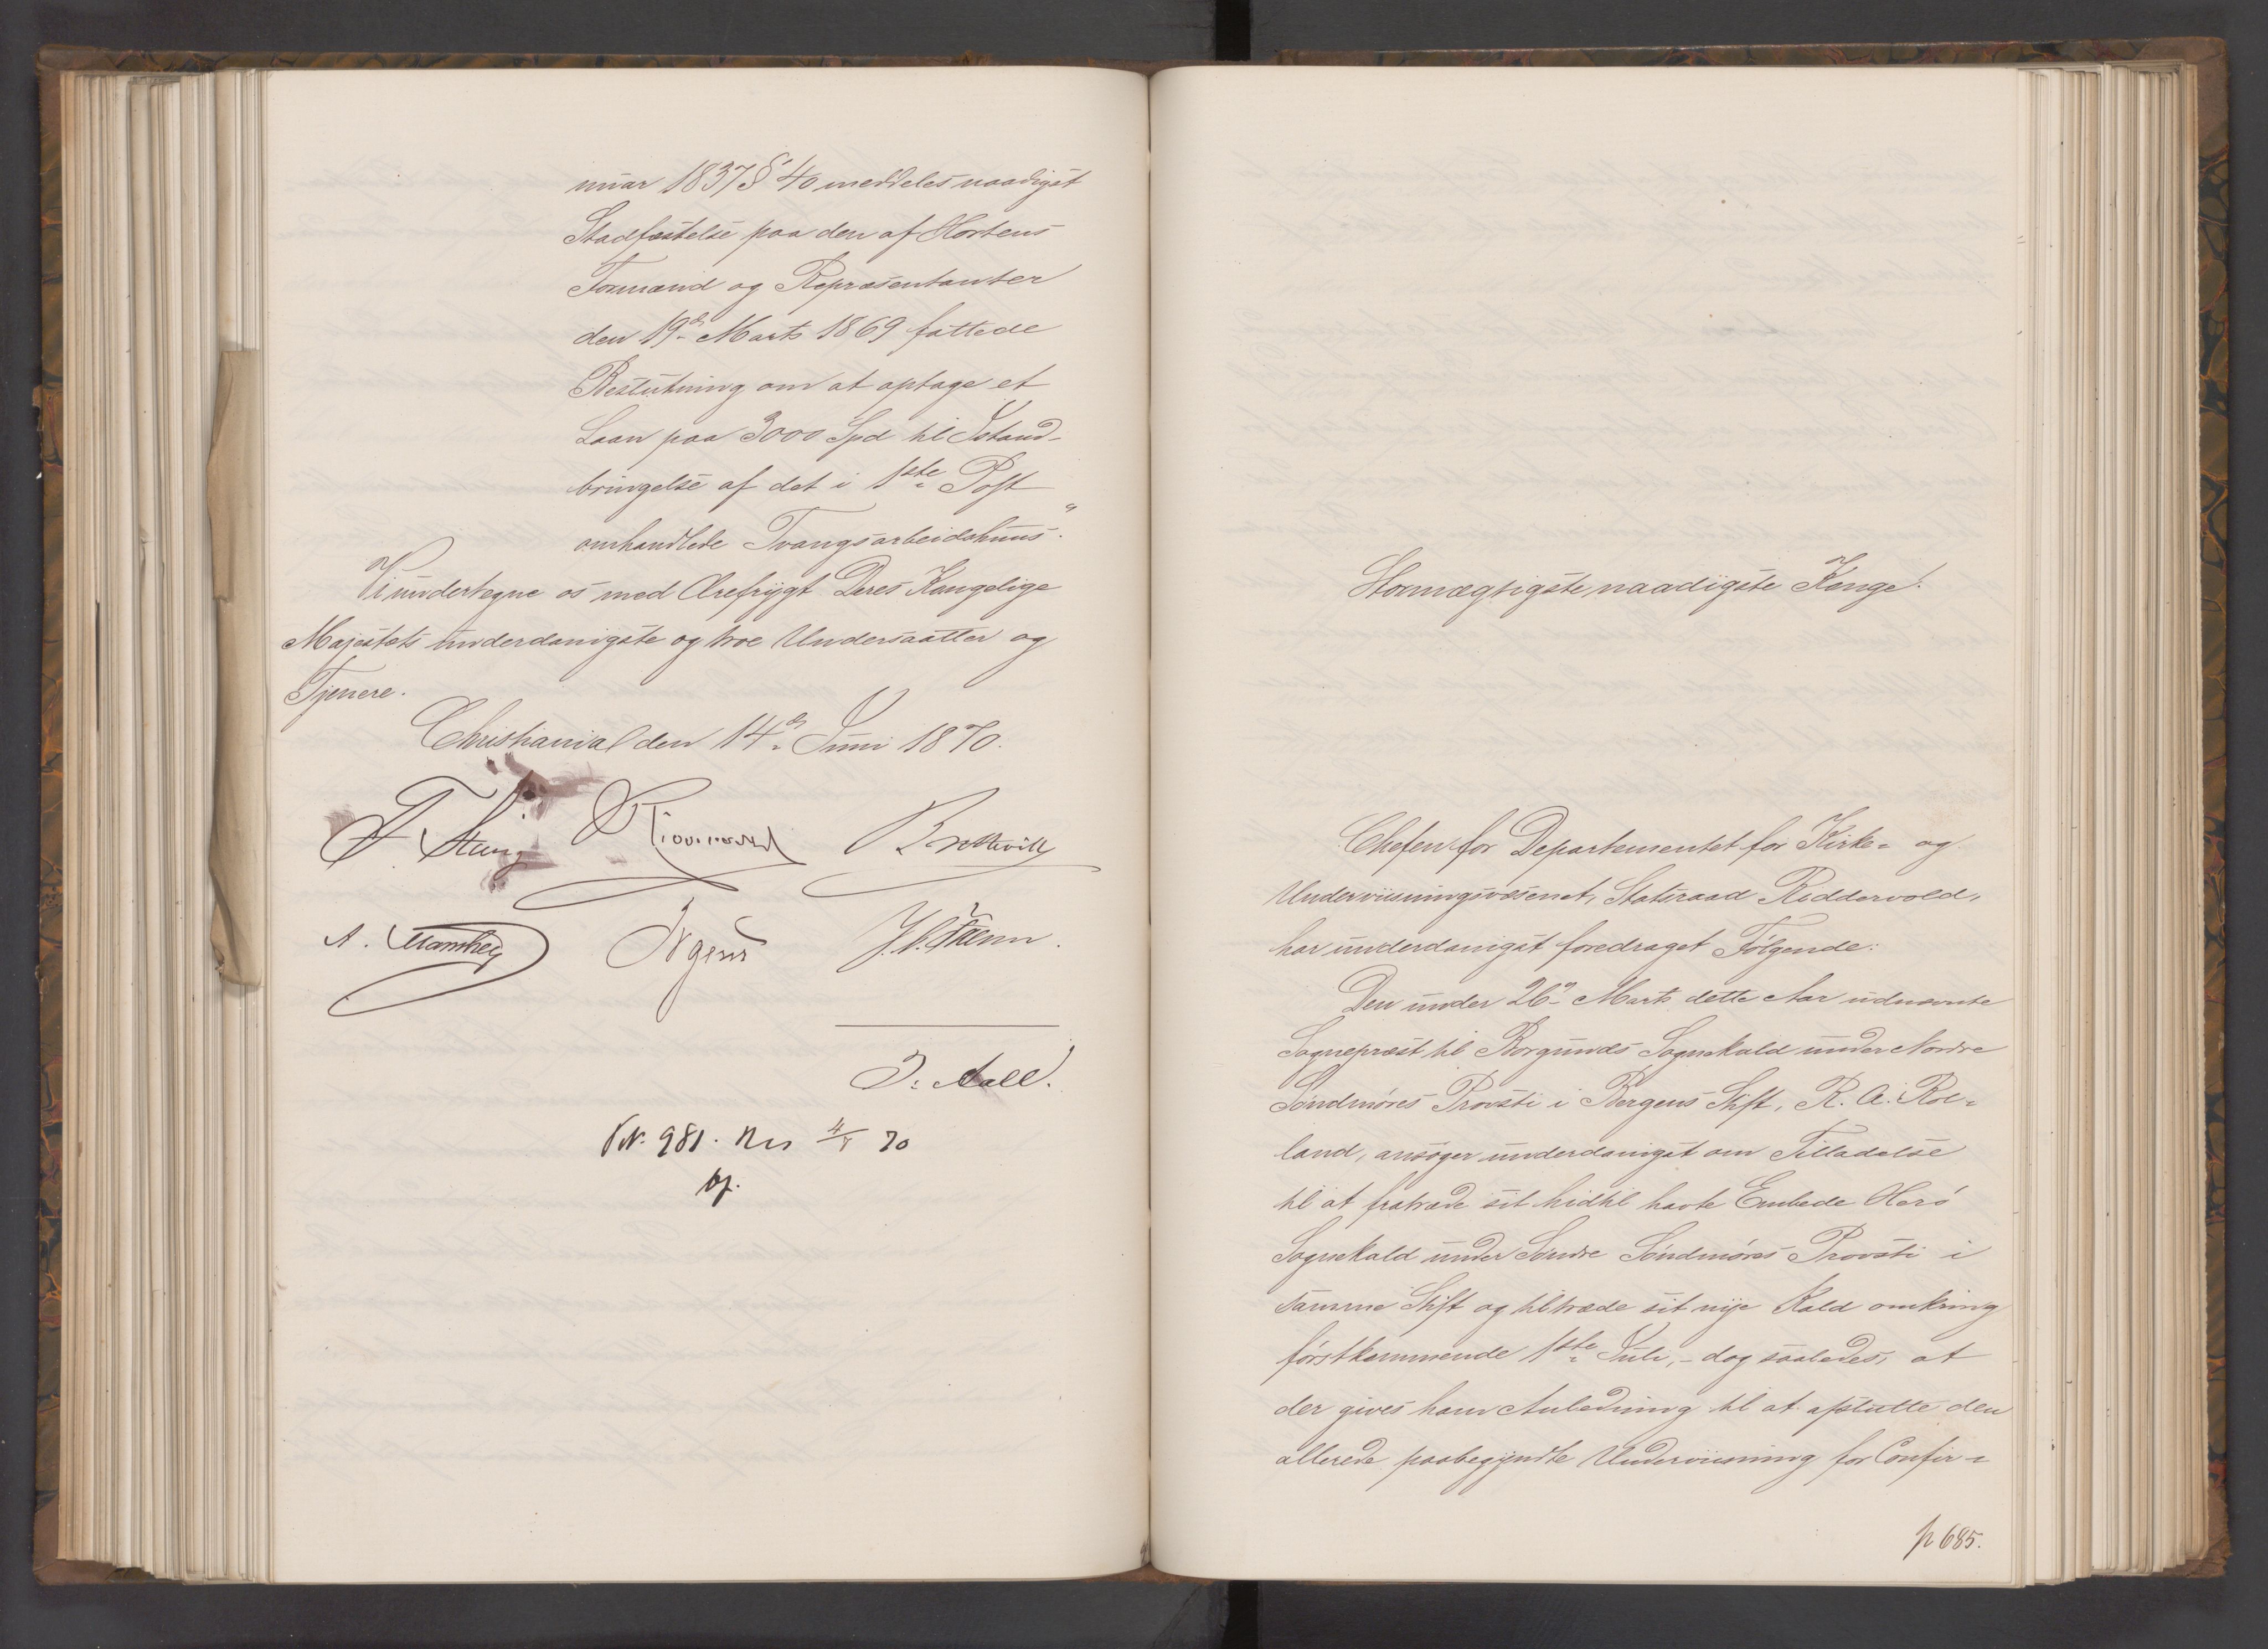 nuar 1837 § 40 meddeles naadigst
Stadfæstelse paa den af Hortens
Formænd og Repræsentanter
den 19de Marts 1869 fattede
Beslutning om at optage et
Laan paa 3000 Spd til Istand-
bringelse af det i 1ste Post
omhandlede Tvangsarbeidshuus".
Vi undertegne os med Ærefrygt Deres Kongelige
Majestæts underdanigste og troe Undersaatter og
Tjenere.
Christiania den 14de Juni 1870.
F Stang Bretteville
A.
J. Aall.
No. 981. 70
Stormægtigste naadigste Konge.
Chefen for Departementet for Kirke- og
Underviisningsvæsenet, Statsraad Riddervold,
har underdanigst foredraget Følgende:
Den under 26de Marts dette Aar udnævnte
Sognepræst til Borgunds Sognekald under Nordre
Søndmøres Provsti i Bergens Stift, R. A. Rol-
land, ansøger underdanigst om Tilladelse
til at fratræde sit hidtil havte Embede Herø
Sognekald under Søndre Søndmøres Provsti i
samme Stift og tiltræde sit nye Kald omkring
førstkommende 1ste Juli, - dog saaledes, at
der gives ham Anledning til at afslutte den
allerede paabegyndte Underviisning for Confir-
p 685.